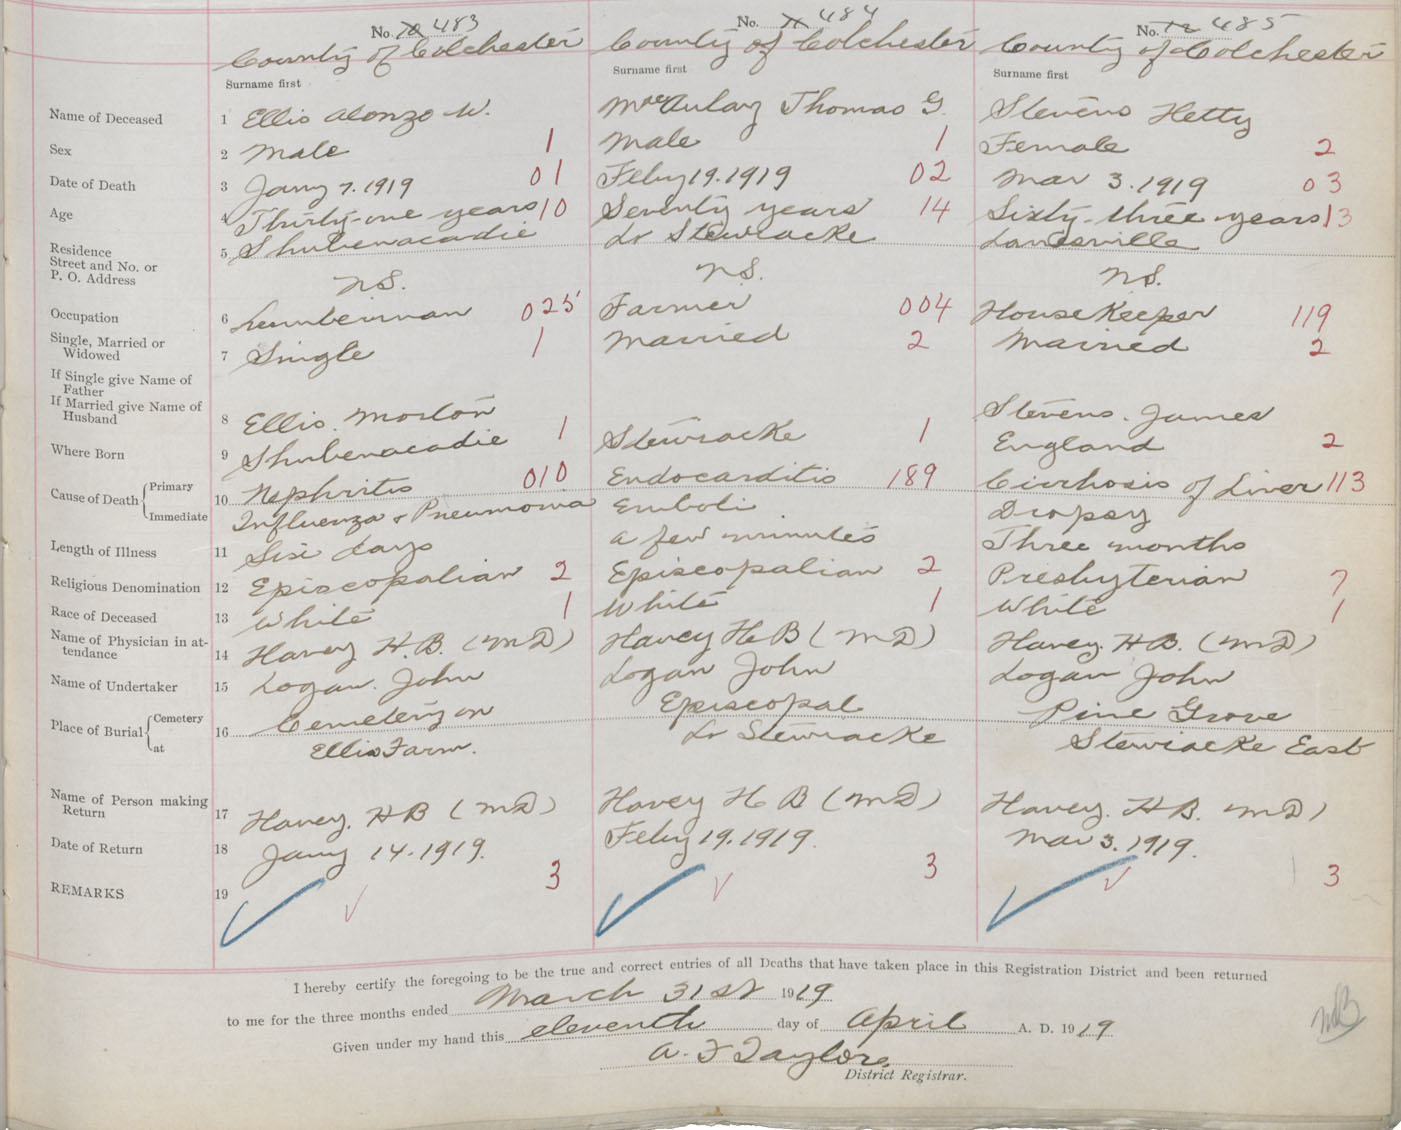 No. 10 483 No. 11 484 No. 12 485
County of Colchester County of Colchester County of Colchester
Surname first Surname first Surname first
Name of Deceased 1 Ellis Alonzo W. MacAulay Thomas G. Stevens Hetty
Sex 2 Male 1 Male 1 Female 2
Date of Death 3 Jany 7. 1919 01 Feby 19. 1919 02 Mar 3. 1919 03
Age 4 Thirty-one years 10 Seventy years 14 Sixty-three years 13
Residence
Street and No. or
P. O. Address
5 Shubenacadie Lr Stewiacke Landsville
N.S. N.S. N.S.
Occupation 6 Lumberman 025 Farmer 004 HouseKeeper 119
Single, Married or
Widowed 7 Single 1 Married 2 Married 2
If Single give Name of
Father
If Married give Name of
Husband 8 Ellis. Morton Stevens. James
Where Born 9 Shubenacadie 1 Stewiacke 1 England 2
Cause of Death Primary 10 Nephritis 010 Endocarditis 189 Cirrhosis of Liver 113
Immediate Influenza & Pneumonia Emboli Dropsy
Length of Illness 11 Six days A few minutes Three months
Religious Denomination 12 Episcopalian 2 Episcopalian 2 Presbyterian 7
Race of Deceased 13 White 1 White 1 White 1
Name of Physician in at-
tendance 14 Havey H.B. (MD) Havey H B (MD) Havey. H B. (MD)
Name of Undertaker 15 Logan. John Logan John Logan John
Place of Burial Cemetery 16 Cemetery on Episcopal Pine Grove
at Ellis Farm. Lr Stewiacke Stewiacke East
Name of Person making
Return 17 Havey. H B (MD) Havey H B (MD) Havey. H B. MD)
Date of Return 18 Jany 14. 1919. Feby 19. 1919. Mar 3. 1919.
REMARKS 19 3 3 3
I hereby certify the foregoing to be the true and correct entries of all Deaths that have taken place in this Registration District and been returned
to me for the three months ended March 31st 1919
Given under my hand this eleventh day of April A. D. 1919
A. F Taylor
District Registrar.